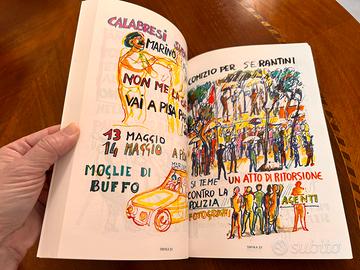 CALABRESI
MARINO
NON ME LA
VAI A PISA
13 MAGGIO
14 MAGGIO
MOGLIE DI
BUFFO
COMIZIO PER SERANTINI
SI TEME UN ATTO DI RITORSIONE
CONTRO LA
POLIZIA
FOTOGRAFI
AGENTI
subito